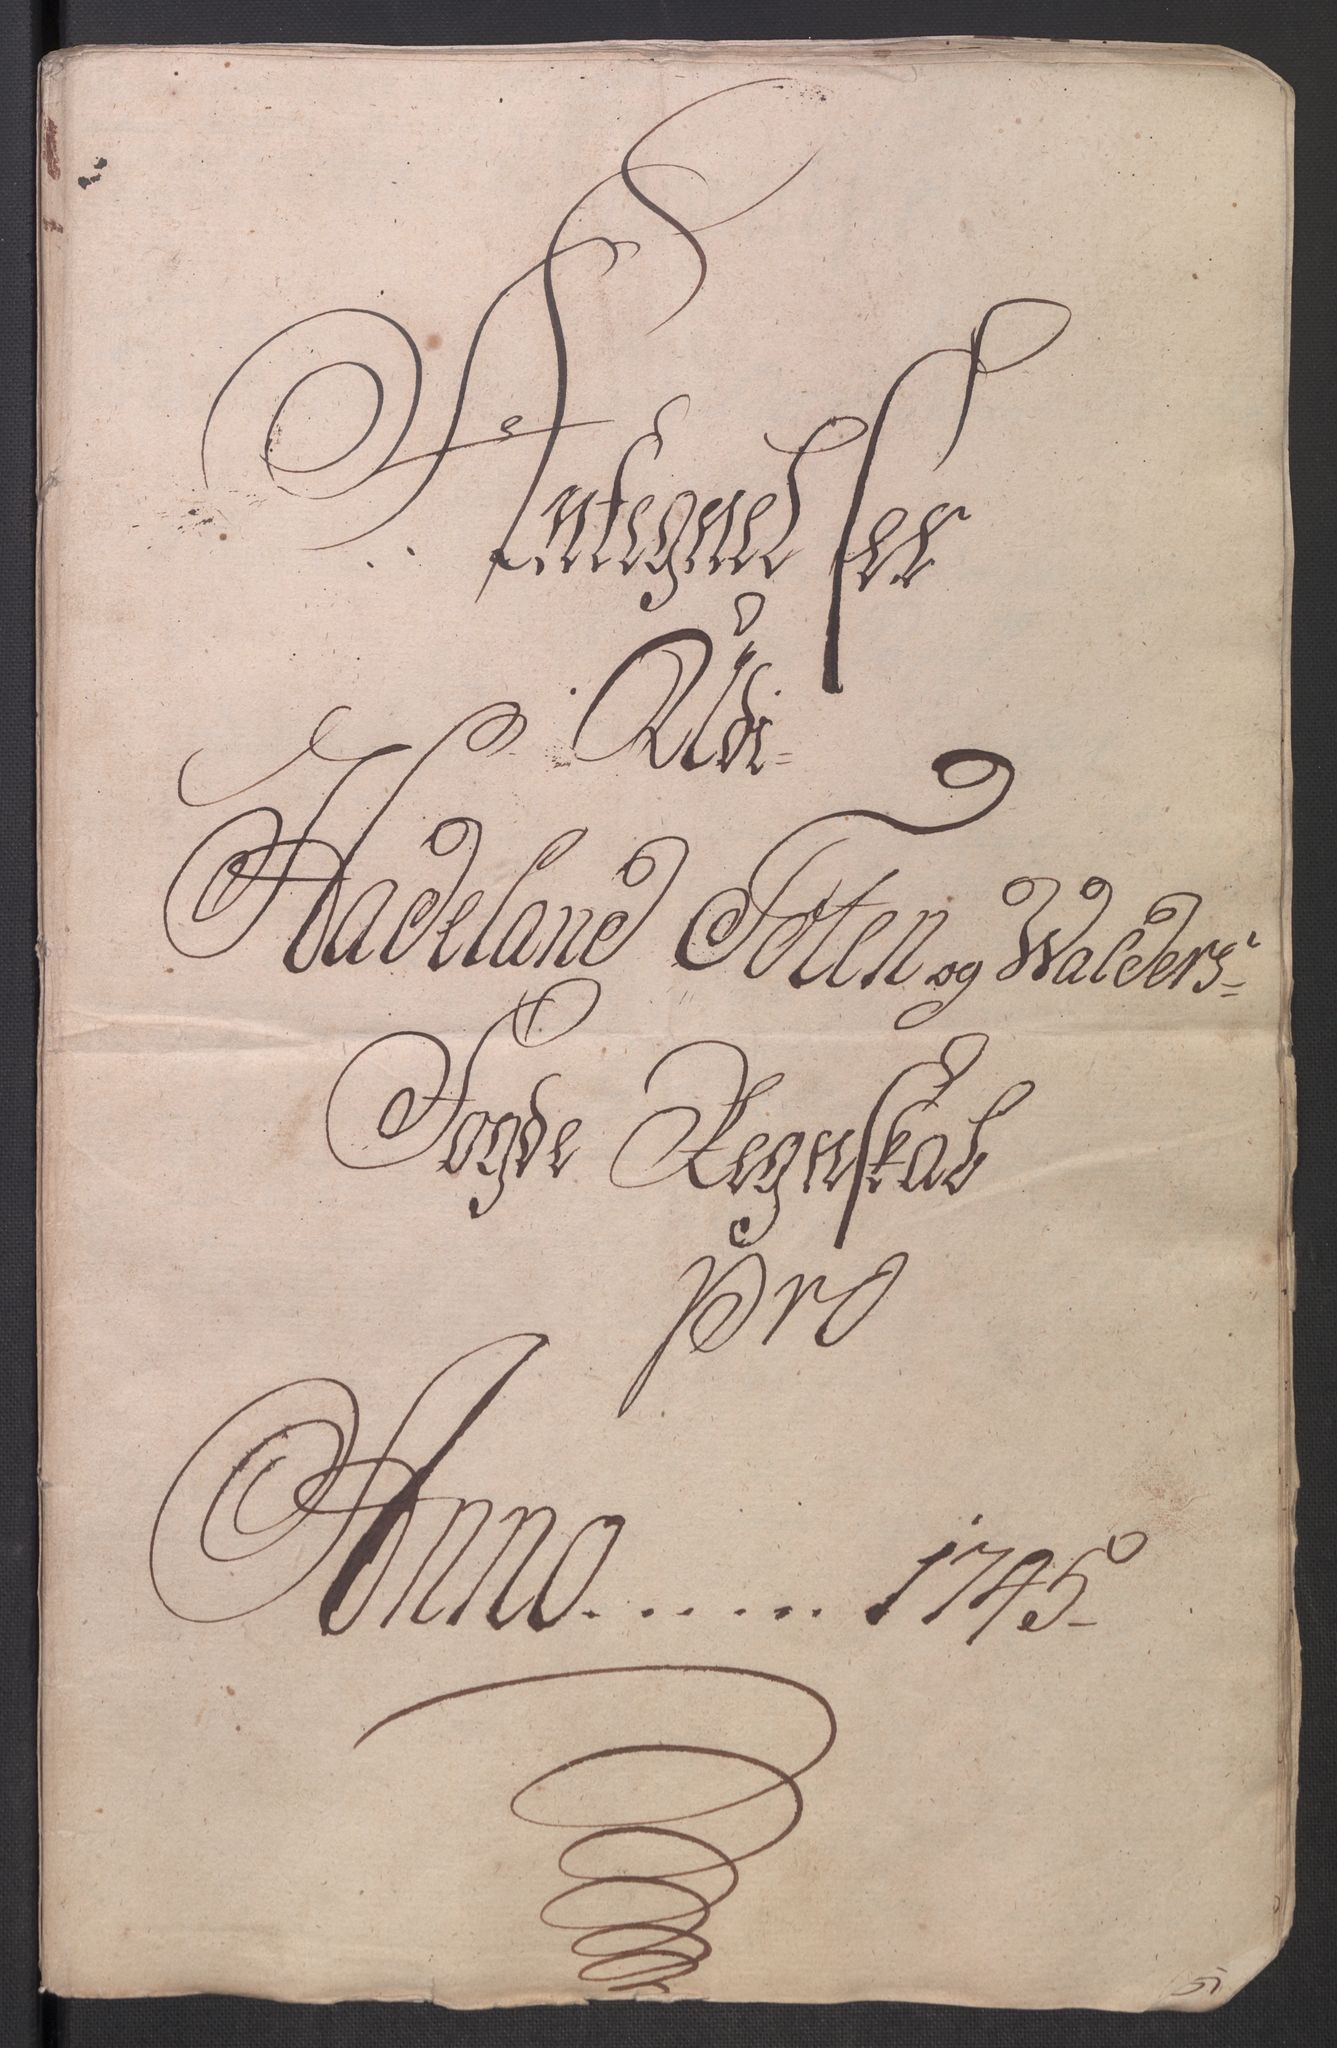 Antegnelser
Udi-
Hadeland Toten og Walders-
Fogde Regnskab
pro
Anno ...... 1745-